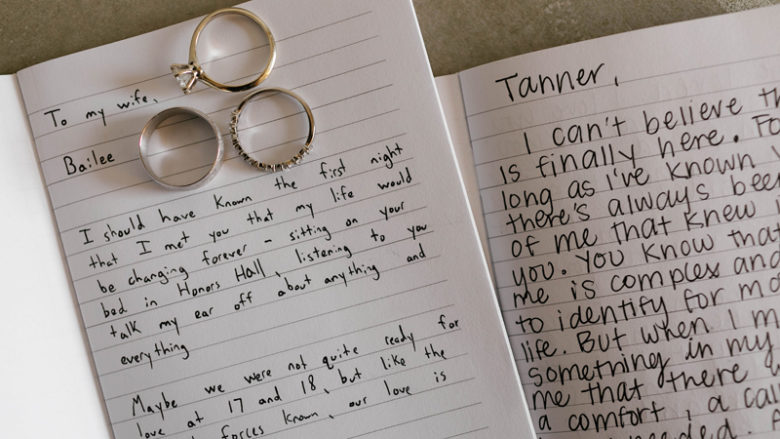 To my wife,
Bailee
I should have known the first night
that I met you that my life would
be changing forever - sitting on your
bed in Honors Hall, listening to you
talk my ear off about anything and
everything
Maybe we were not quite ready for
love at 17 and 18, but like the
forces known, our love is
Tanner,
I can't believe th
is finally here. Fo
long as I've known y
there's always bee
of me that knew
you. You know that
me is complex and
to identify for mo
life. But when I m
something in my
me that there w
a comfort, a cal
needed.